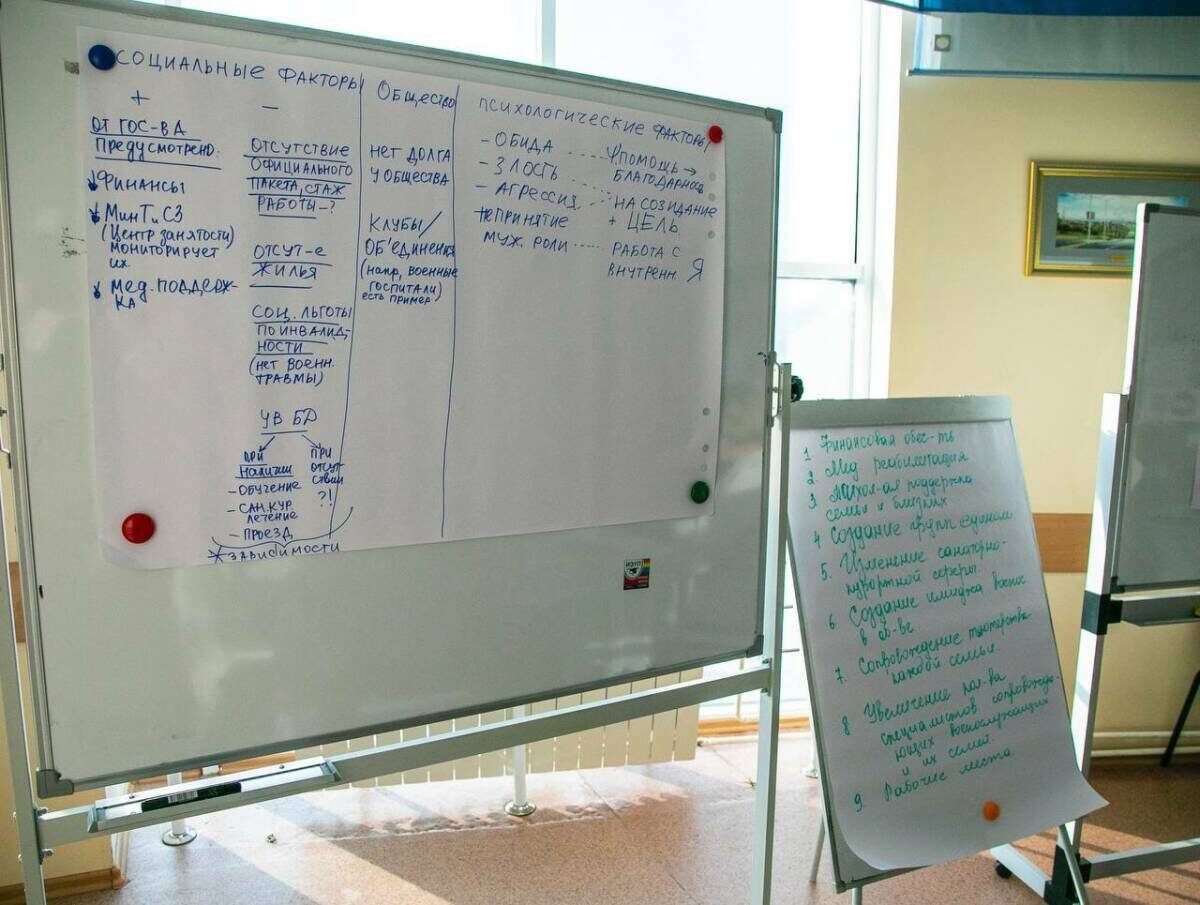 СОЦИАЛЬНЫЕ ФАКТОРЫ
+
ОТ ГОС-ВА
ПРЕДУСМОТРЕНО:
ФИНАНСЫ
МинТиСЗ
(Центр занятости)
мониторирует
их
МЕД. ПОДДЕРЖ-
КА
–
ОТСУТСТВИЕ
ОФИЦИАЛЬНОГО
ПАКЕТА, СТАЖ
РАБОТЫ-?
ОТСУТ-Е
ЖИЛЬЯ
СОЦ. ЛЬГОТЫ
ПО ИНВАЛИД-
НОСТИ
(НЕТ ВОЕНН.
ТРАВМЫ)
УВ БД
ПРИ
НАЛИЧИИ
- ОБУЧЕНИЕ
- САН.КУР.
ЛЕЧЕНИЕ
- ПРОЕЗД
ПРИ
ОТСУТ-
СТВИИ
?!
* ЗАВИСИМОСТИ
ОБЩЕСТВО
НЕТ ДОЛГА
У ОБЩЕСТВА
КЛУБЫ/
ОБ'ЕДИНЕНИЯ
(напр, военные
госпитали)
есть пример
ПСИХОЛОГИЧЕСКИЕ ФАКТОРЫ
- ОБИДА .... ПОМОЩЬ →
БЛАГОДАРНОСТЬ
- ЗЛОСТЬ
- АГРЕССИЯ ... НА СОЗИДАНИЕ
+ ЦЕЛЬ
НЕПРИНЯТИЕ
МУЖ. РОЛИ ..... РАБОТА С
ВНУТРЕНН. Я
1 Финансовая обес-ть
2. Мед реабилитация
3 Психол-ая поддержка
семьи и близких
4 Создание групп
5. Изменение санаторно-
курортной сферы
6 Создание имиджа
в об-ве
7. Сопровождение
каждой семьи.
8 Увеличение кол-ва
специалистов сопровожда-
ющих военослужащих
и их семей
9. Рабочие места